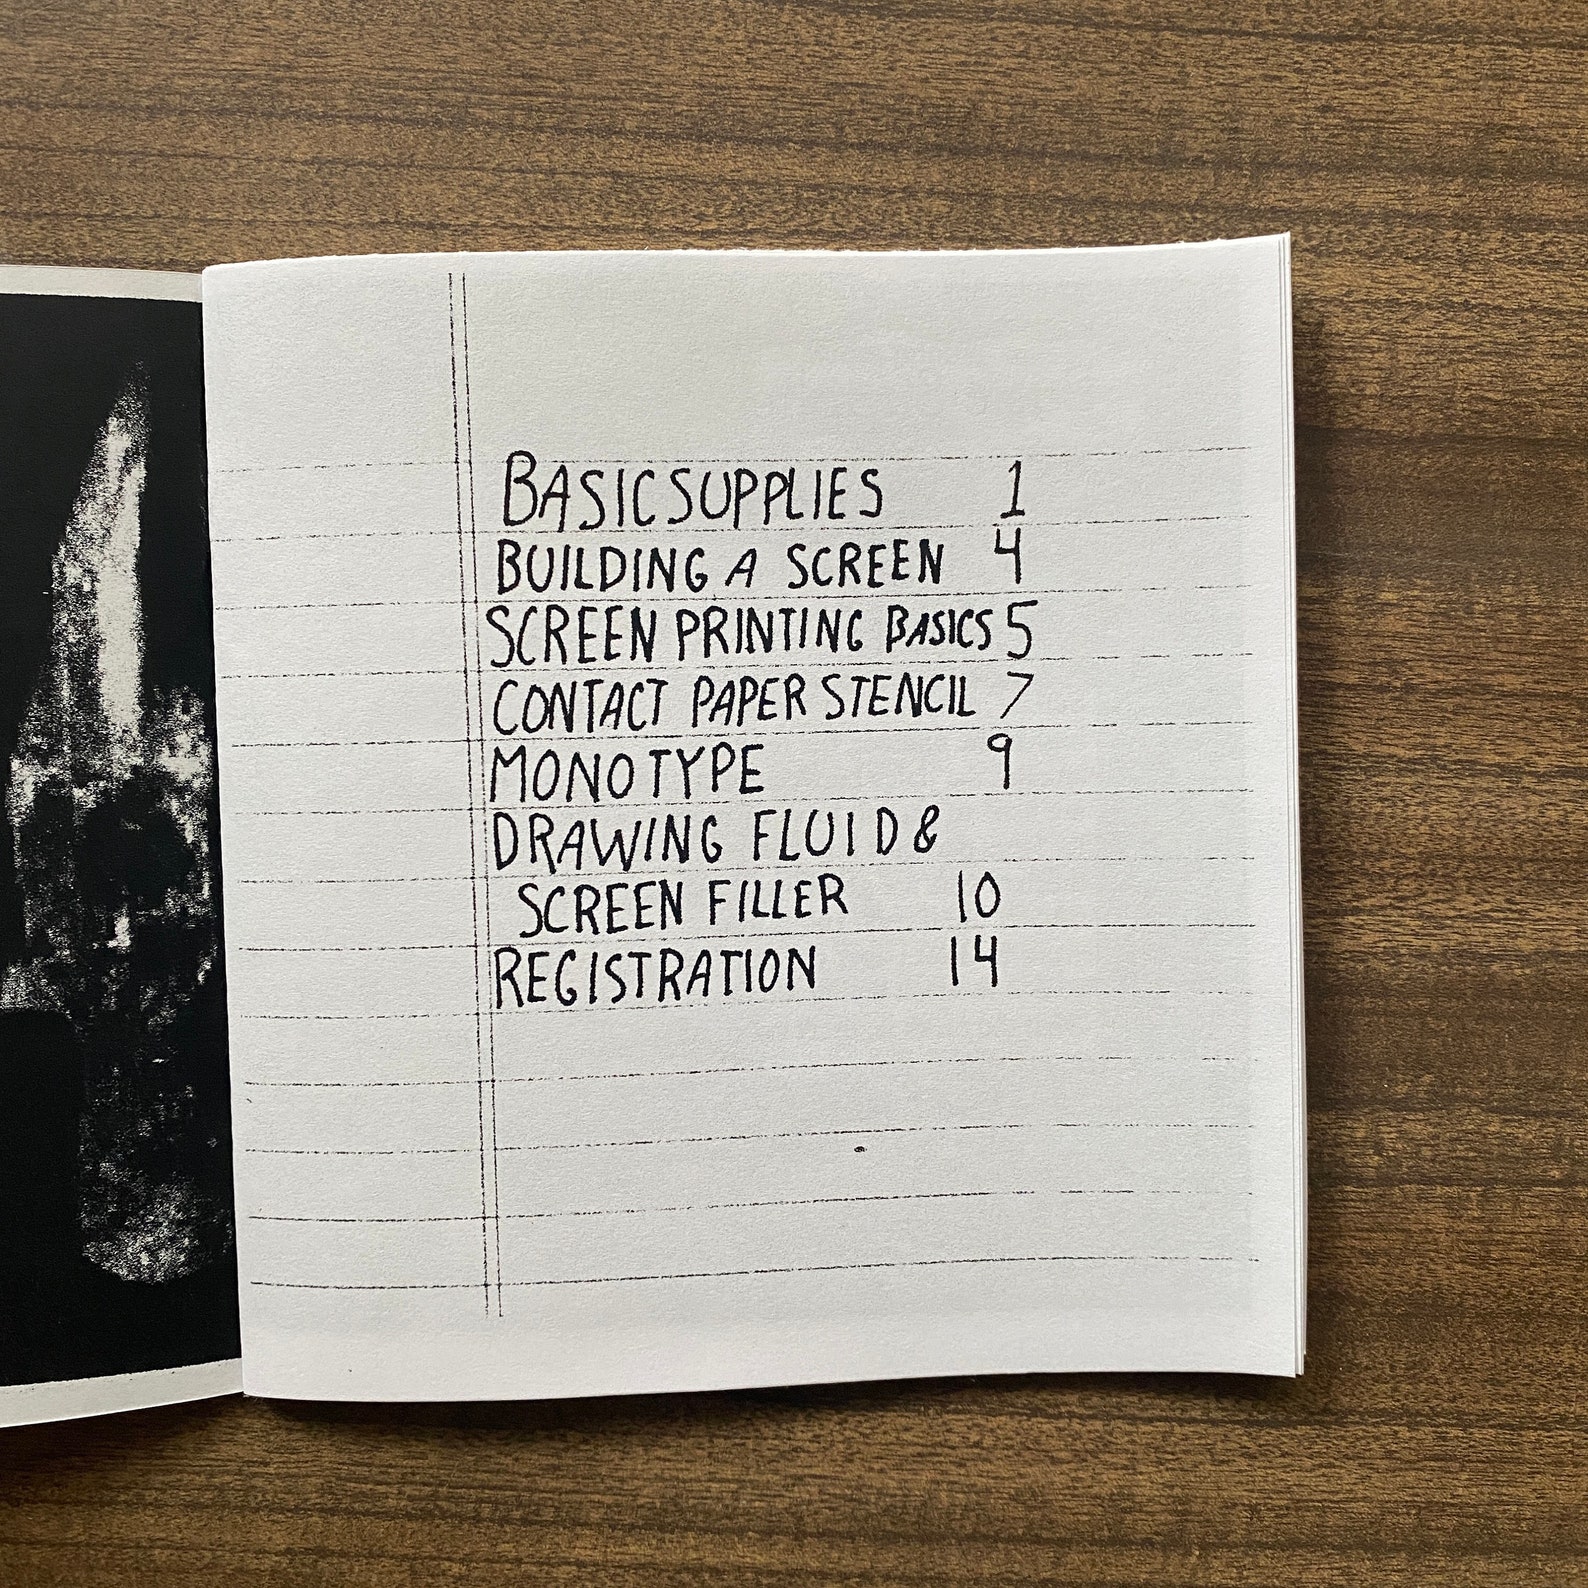 BASIC SUPPLIES 1
BUILDING A SCREEN 4
SCREEN PRINTING BASICS 5
CONTACT PAPER STENCIL 7
MONOTYPE 9
DRAWING FLUID &
SCREEN FILLER 10
REGISTRATION 14